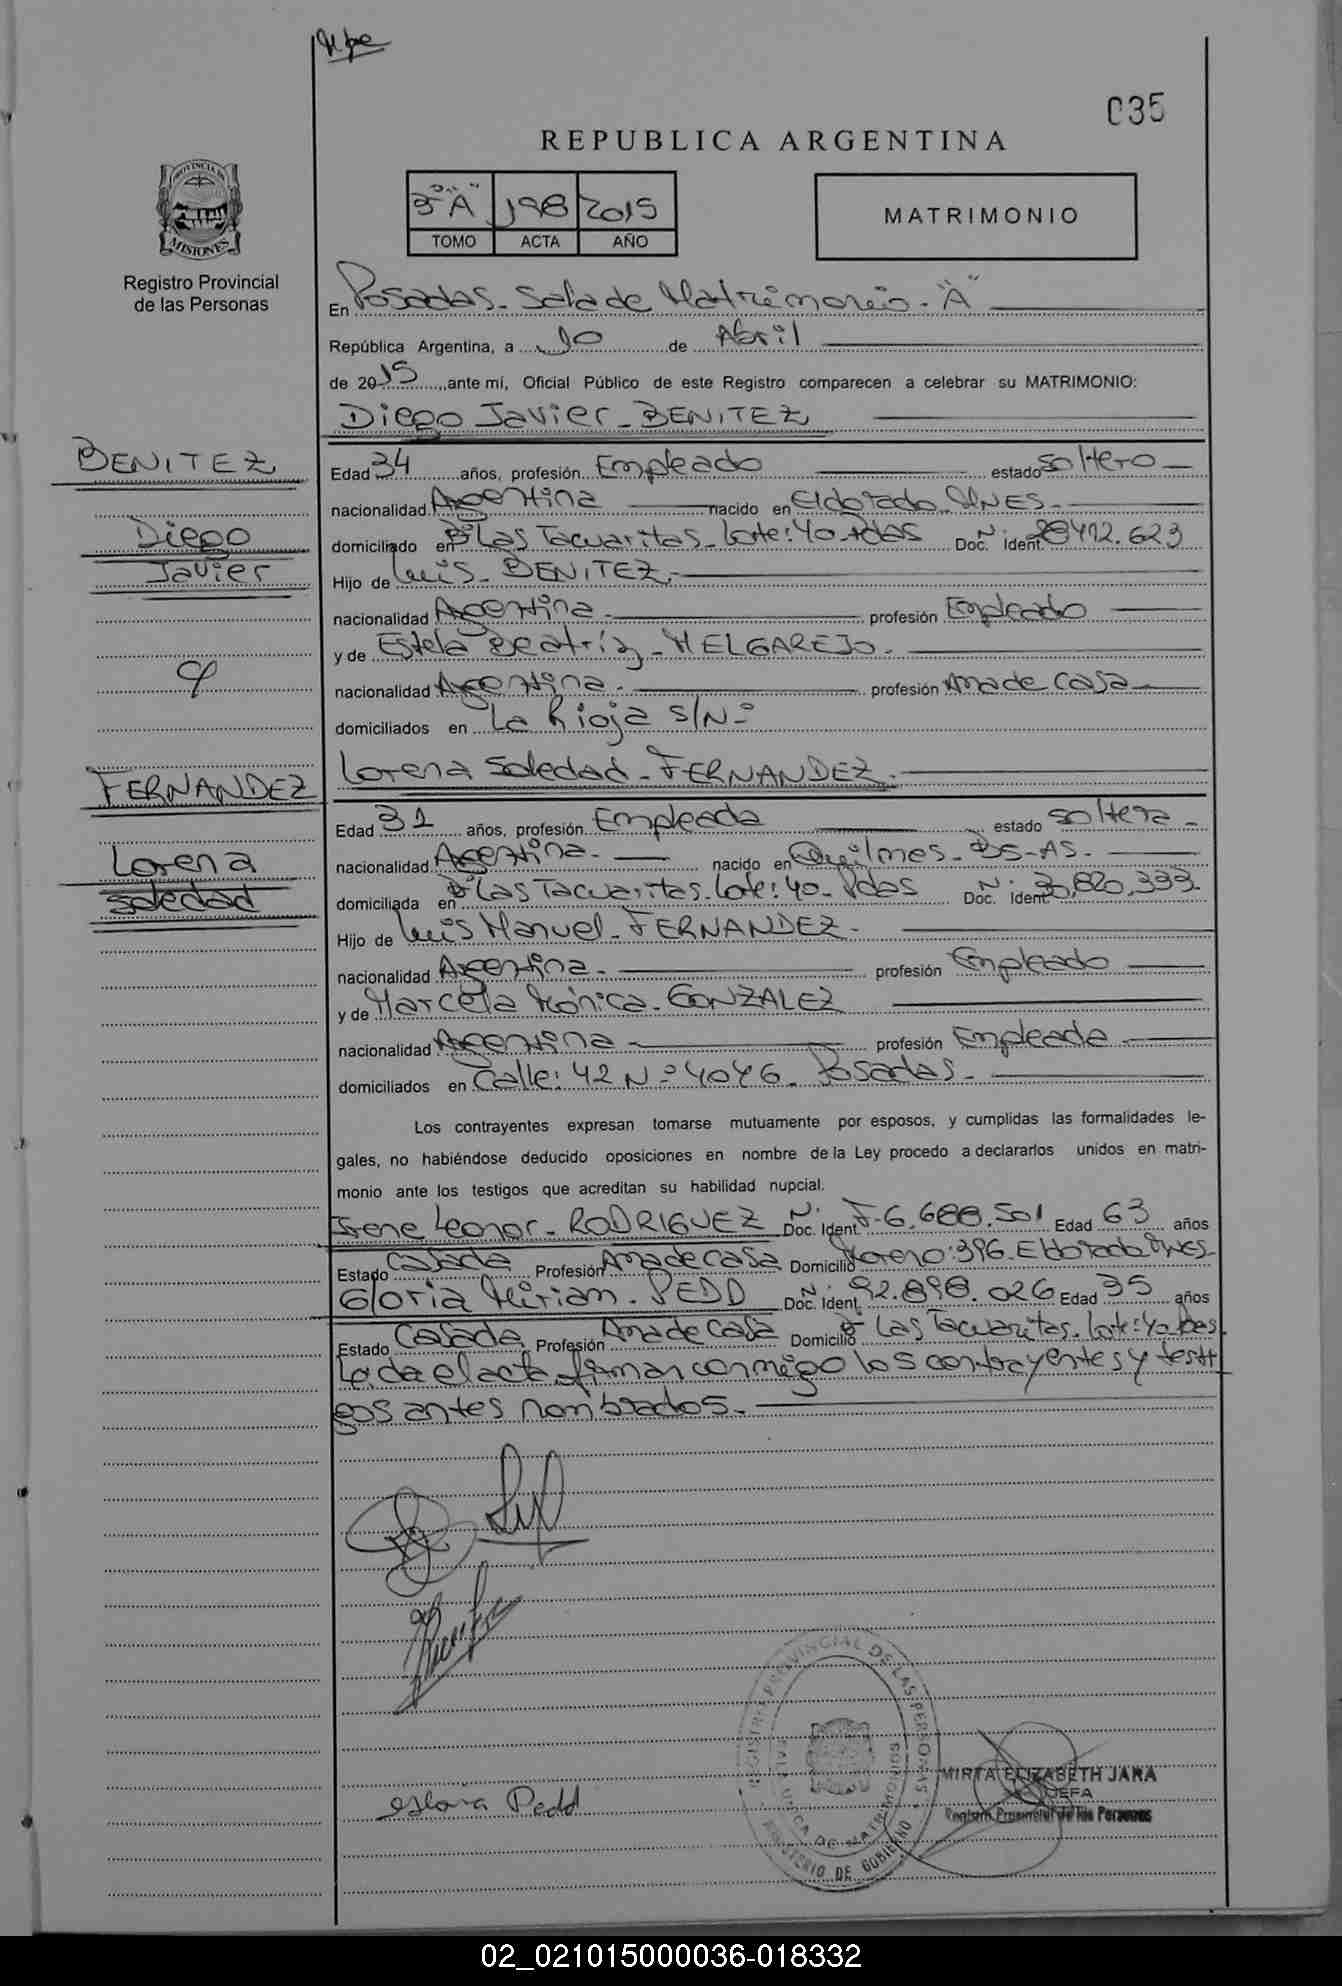 035
REPUBLICA ARGENTINA
PROVINCIA DE
MISIONES
Registro Provincial
de las Personas
3º "A" 198 2015
TOMO ACTA AÑO
MATRIMONIO
En Posadas - Sala de Matrimonio - "A"
República Argentina, a 10 de Abril
de 2015, ante mí, Oficial Público de este Registro comparecen a celebrar su MATRIMONIO:
Diego Javier - BENITEZ
BENITEZ
Diego
Javier
Edad 34 años, profesión Empleado estado soltero
nacionalidad Argentina nacido en Eldorado MNES.
domiciliado en Bº Las Tacuaritas - Lote: 40 - Pdas Doc. Ident. Nº 28412.623
Hijo de Luis - BENITEZ.
nacionalidad Argentina. profesión Empleado
y de Estela Beatriz - MELGAREJO.
nacionalidad Argentina. profesión Ama de casa
domiciliados en La Rioja S/Nº
Lorena Soledad - FERNANDEZ.
FERNANDEZ
Lorena
Soledad
Edad 31 años, profesión Empleada estado soltera -
nacionalidad Argentina. nacido en Quilmes - BS-AS.
domiciliada en Bº Las Tacuaritas. Lote: 40 - Pdas Doc. Ident. Nº 30.820.333.
Hijo de Luis Manuel - FERNANDEZ.
nacionalidad Argentina. profesión Empleado
y de Marcela Mónica - GONZALEZ
nacionalidad Argentina profesión Empleada
domiciliados en Calle: 42 Nº 4046. Posadas.
Los contrayentes expresan tomarse mutuamente por esposos, y cumplidas las formalidades le-
gales, no habiéndose deducido oposiciones en nombre de la Ley procedo a declararlos unidos en matri-
monio ante los testigos que acreditan su habilidad nupcial.
Irene Leonor - RODRIGUEZ Doc. Ident. Nº F-6.688.501 Edad 63 años
Estado Casada Profesión Ama de casa Domicilio Moreno: 396. Eldorado MNES
Gloria Mirian - PEDD Doc. Ident. Nº 92.898.026 Edad 35 años
Estado Casada Profesión Ama de Casa Domicilio Bº Las Tacuaritas. Lote: 40 Pdas
Leída el acta firman conmigo los contrayentes y testi
gos antes nombrados.
Gloria Pedd
REGISTRO PROVINCIAL DE LAS PERSONAS
MINISTERIO DE GOBIERNO
MIRTA ELIZABETH JARA
JEFA
Registro Provincial de las Personas
02_021015000036-018332